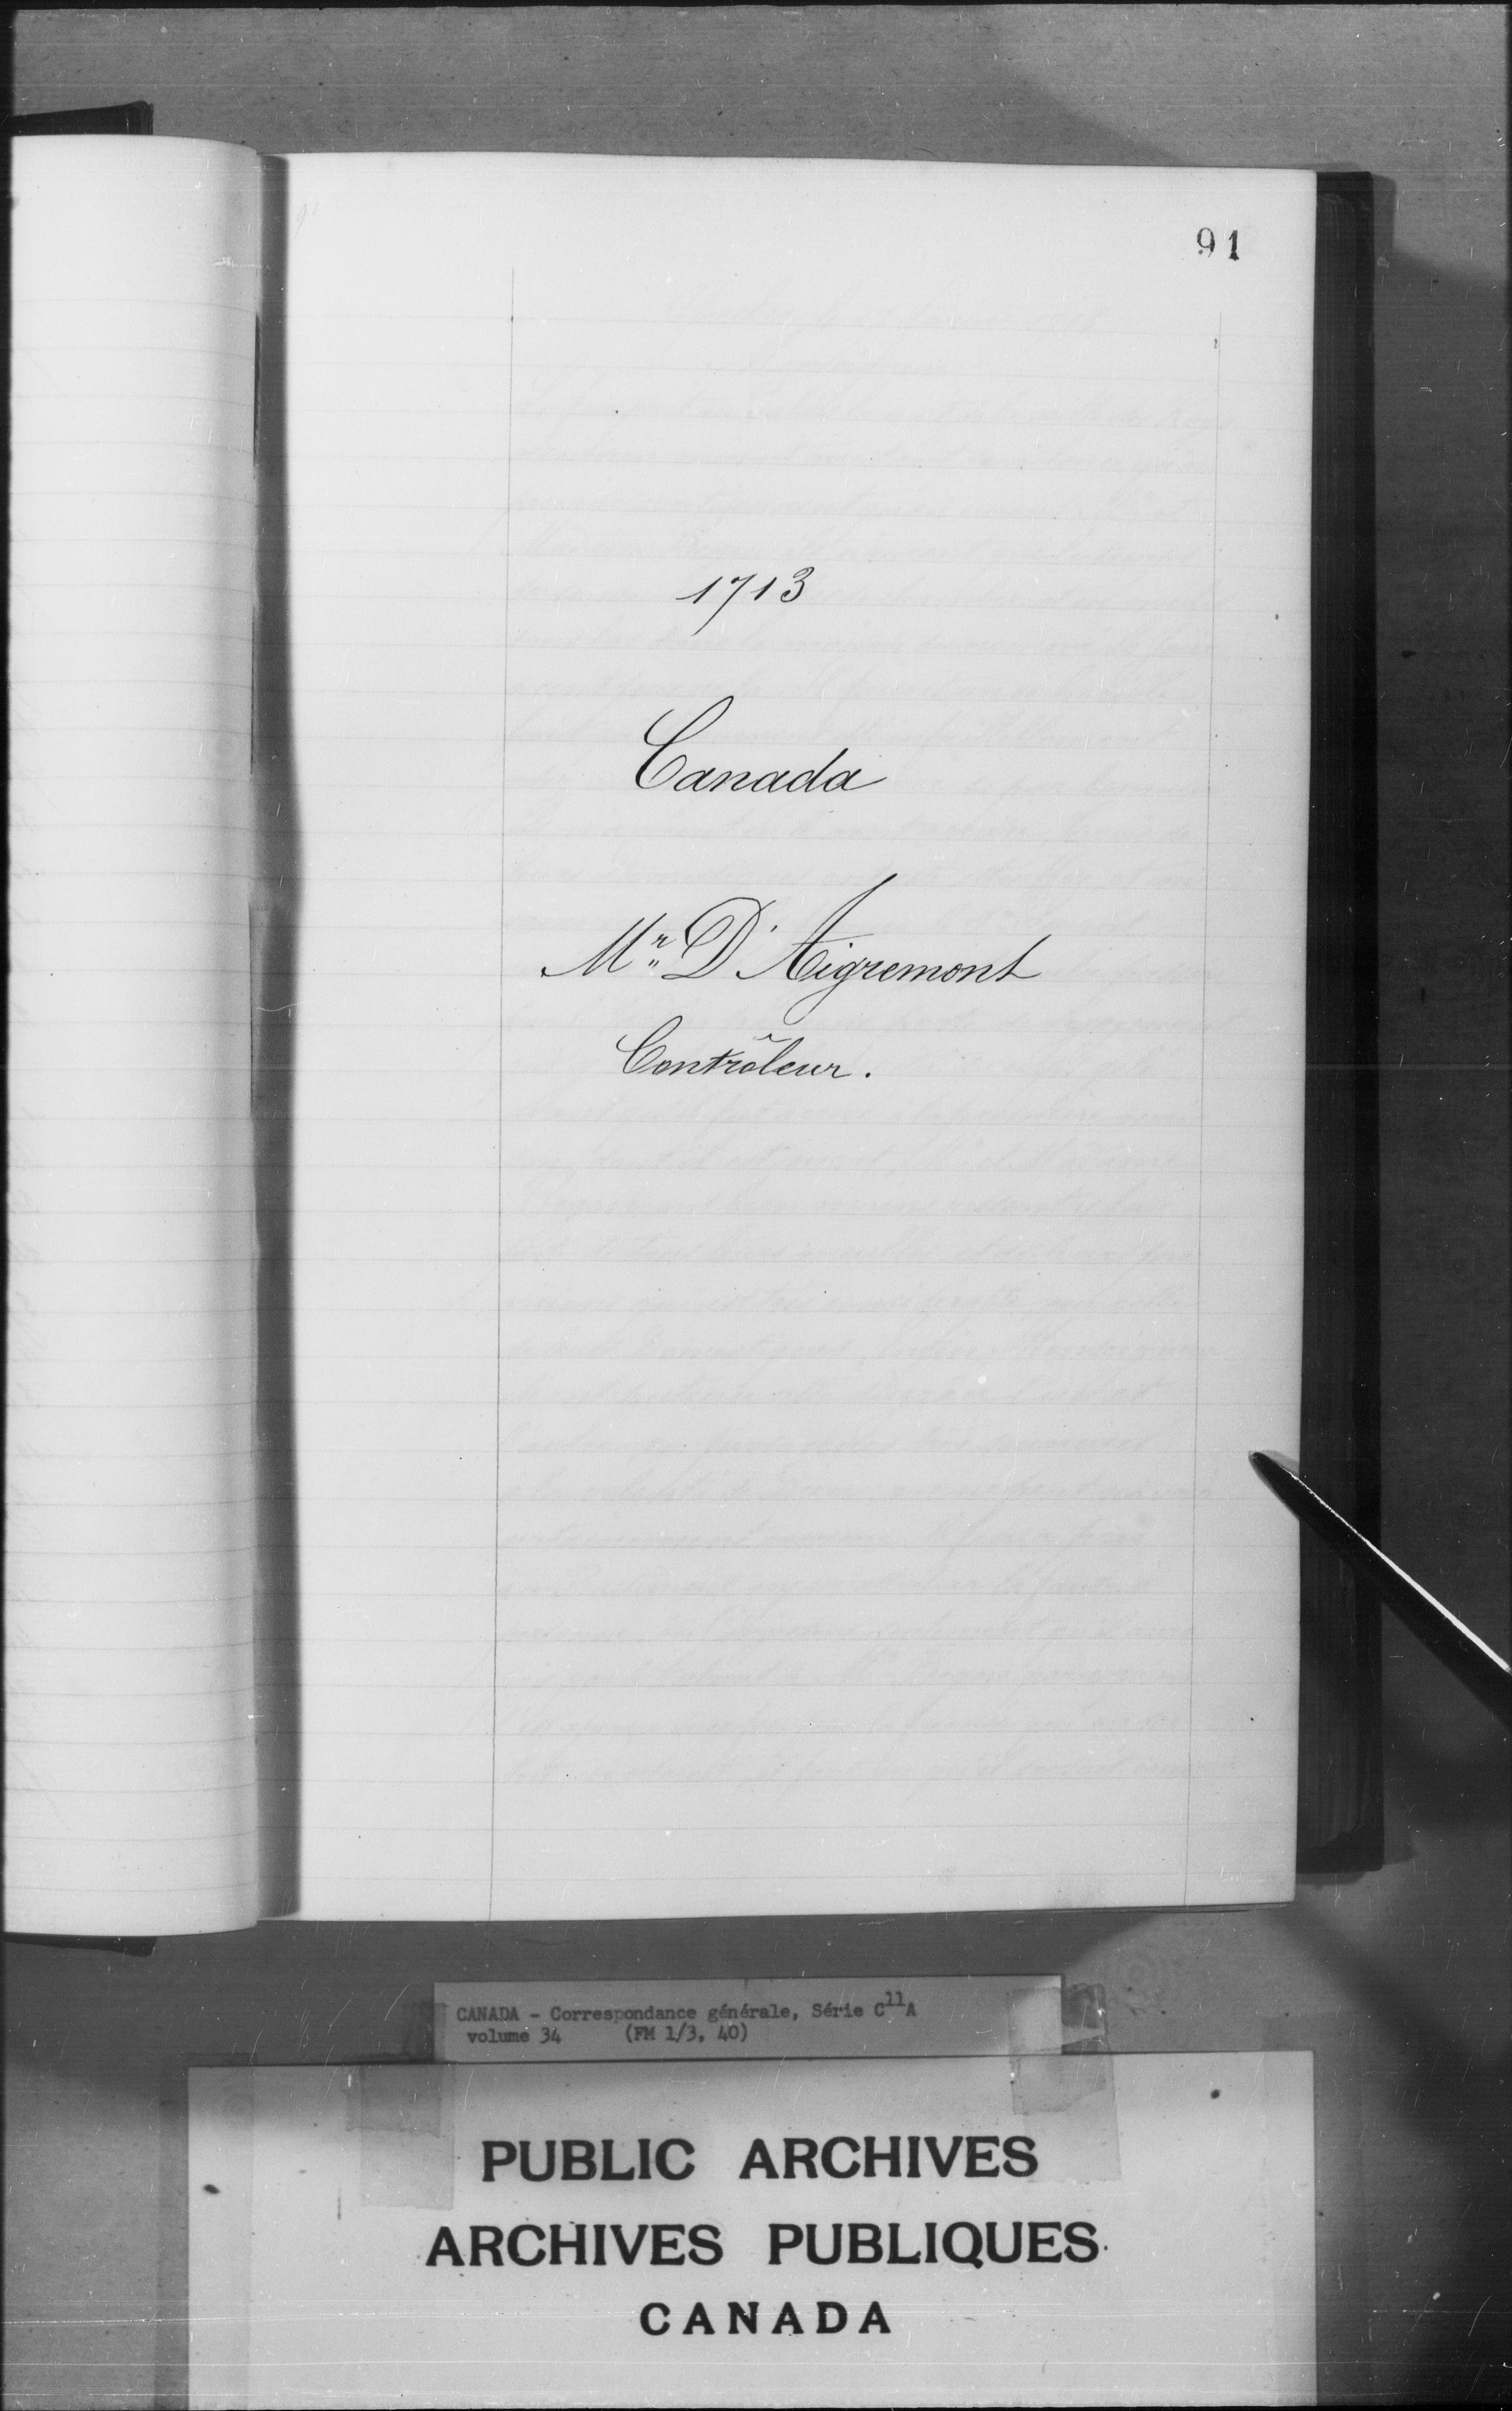 91
1713
Canada
Mr D'Aigremont
Contrôleur.
CANADA - Correspondance générale, Série C11A
volume 34 (FM 1/3, 40)
PUBLIC ARCHIVES
ARCHIVES PUBLIQUES
CANADA